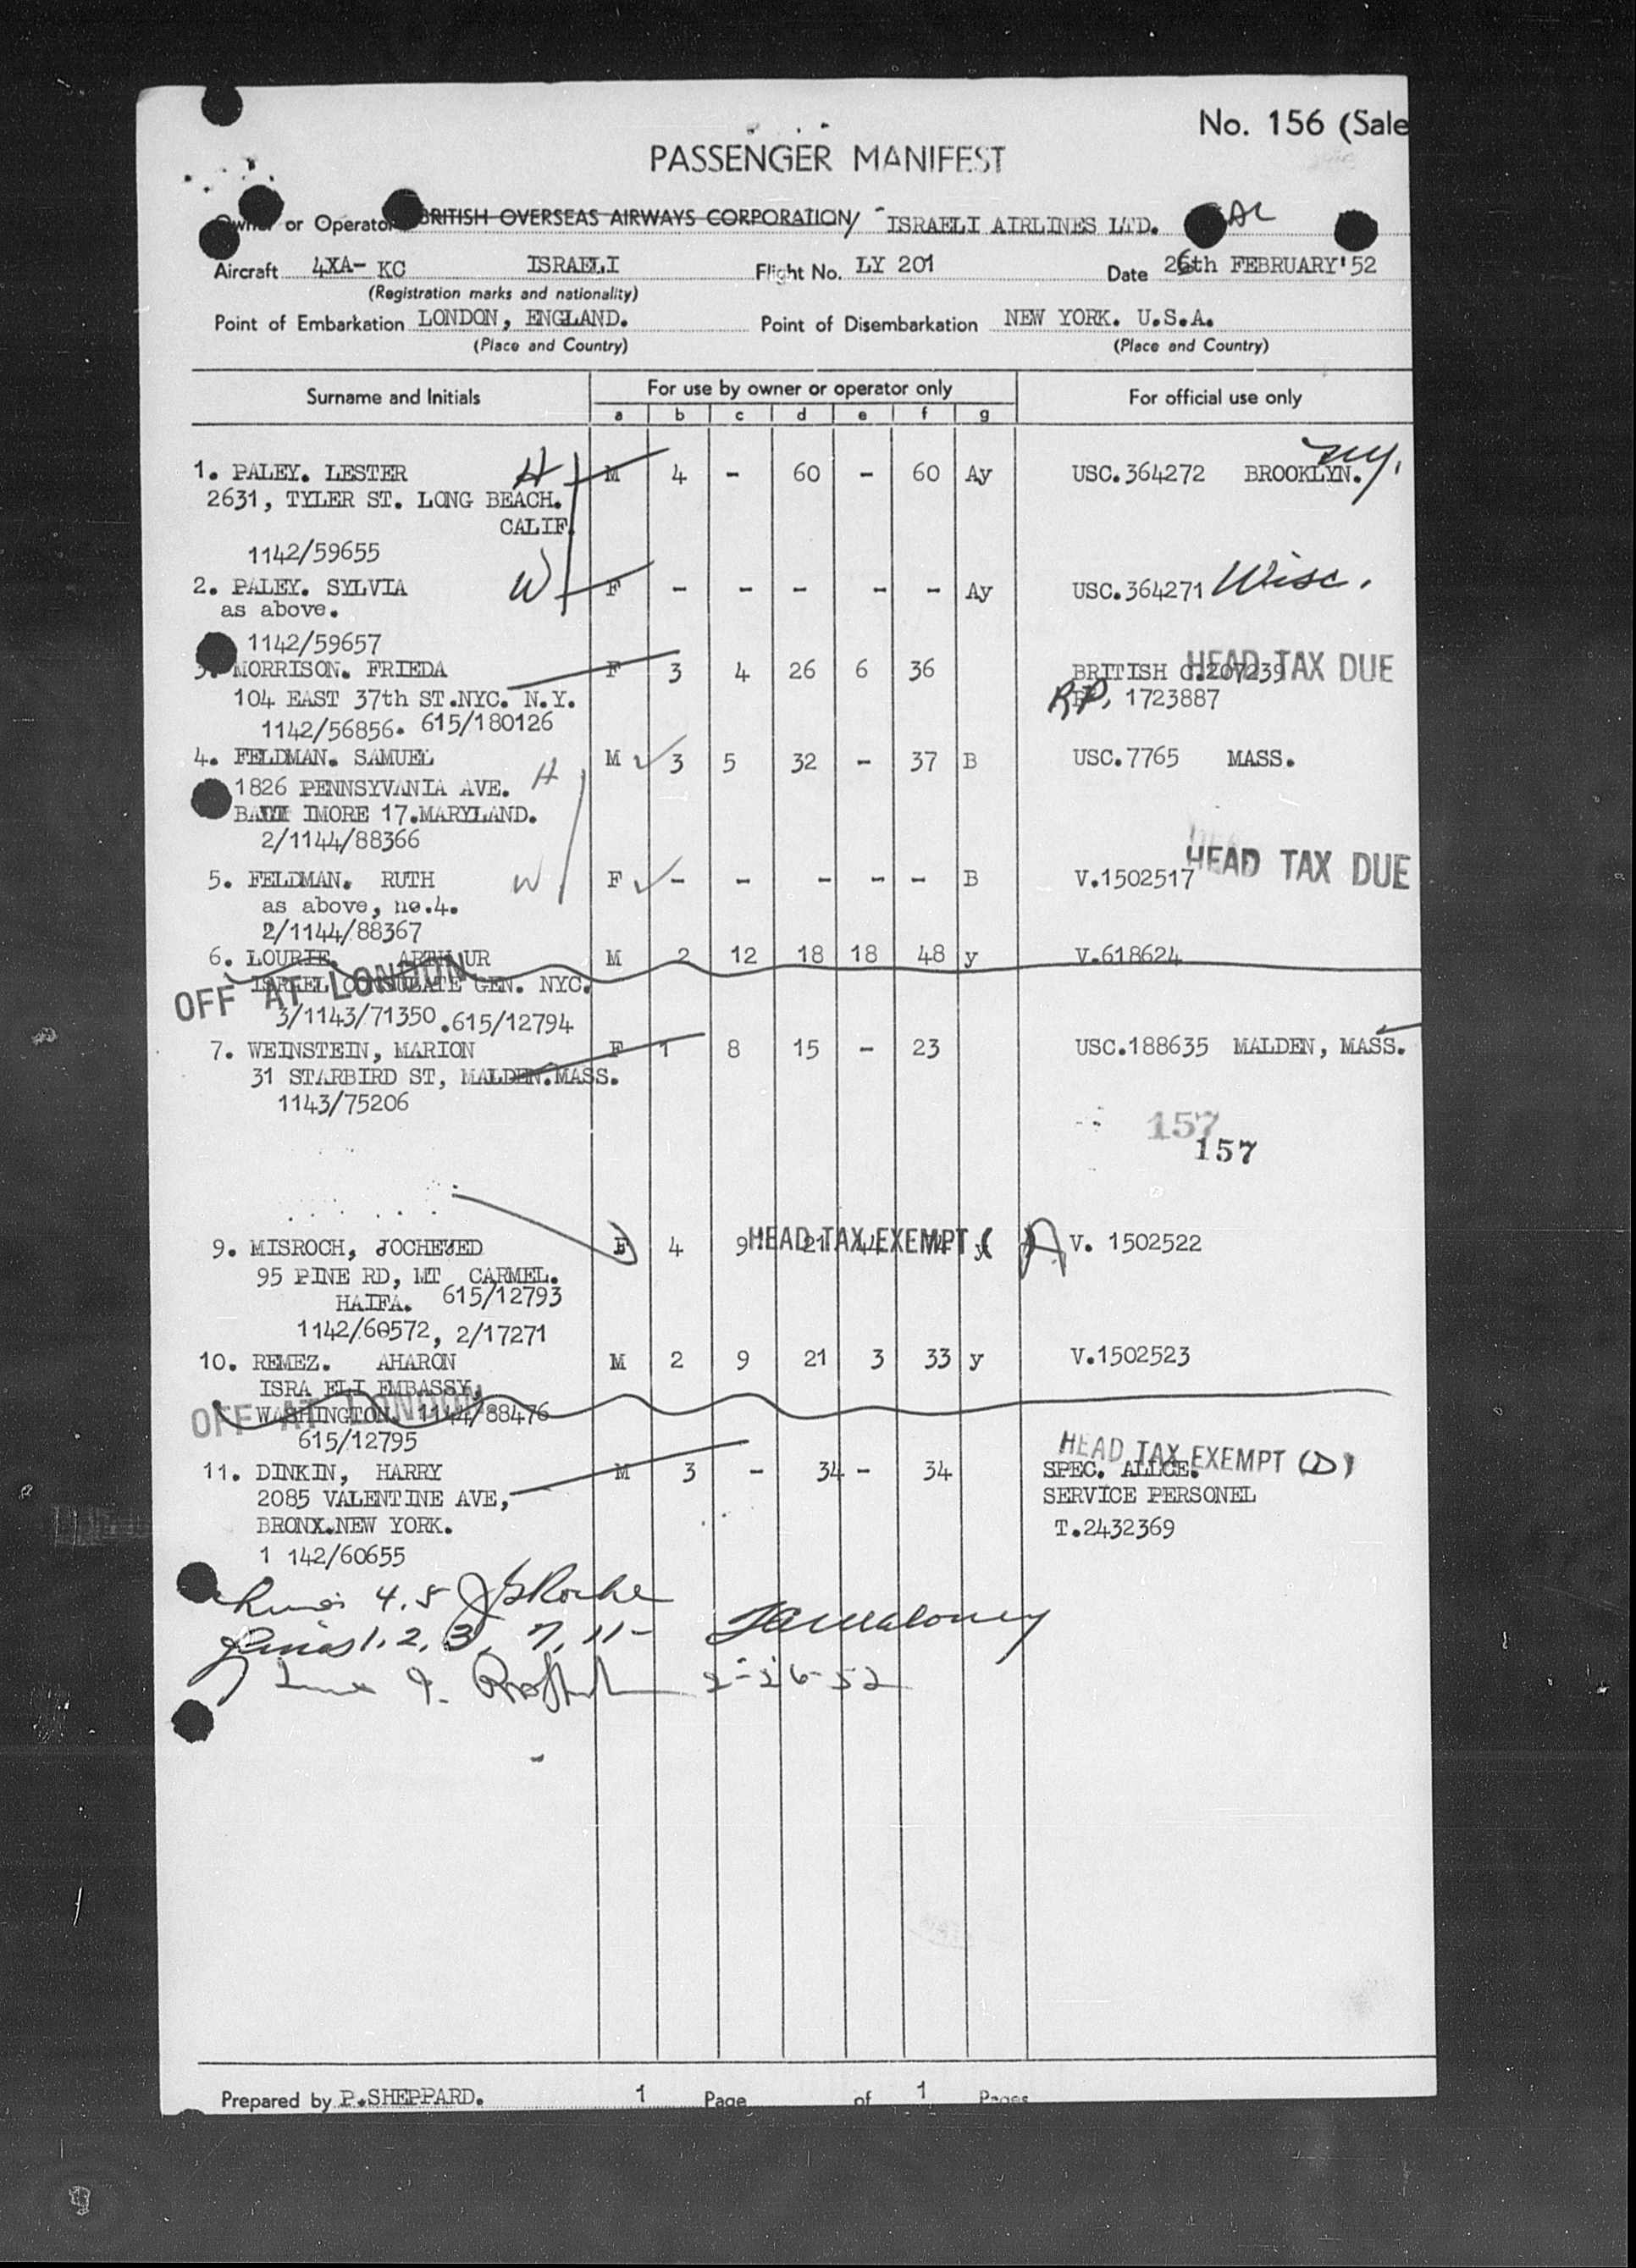 No. 156 (Sale
PASSENGER MANIFEST
Owner or Operator BRITISH OVERSEAS AIRWAYS CORPORATION/ ISRAELI AIRLINES LTD.
Aircraft 4XA- KC ISRAELI Flight No. LY 201 Date 26th FEBRUARY'52
(Registration marks and nationality)
Point of Embarkation LONDON, ENGLAND. Point of Disembarkation NEW YORK. U.S.A.
(Place and Country) (Place and Country)
Surname and Initials For use by owner or operator only For official use only
a b c d e f g
1. PALEY. LESTER H M 4 - 60 - 60 Ay USC.364272 BROOKLYN. NY.
2631, TYLER ST. LONG BEACH.
CALIF.
1142/59655
2. PALEY. SYLVIA W F - - - - - Ay USC.364271 Wisc.
as above.
1142/59657
3. MORRISON. FRIEDA F 3 4 26 6 36 BRITISH C.207239 HEAD TAX DUE
104 EAST 37th ST.NYC. N.Y. RP, 1723887
1142/56856. 615/180126
4. FELDMAN. SAMUEL M 3 5 32 - 37 B USC.7765 MASS.
1826 PENNSYVANIA AVE. H
BALT IMORE 17.MARYLAND.
2/1144/88366
HEAD TAX DUE
5. FELDMAN. RUTH W F - - - - - B V.1502517
as above, no.4.
2/1144/88367
6. LOURIE. ARTHUR M 2 12 18 18 48 y V.618624
ISRAEL CONSULATE GEN. NYC.
OFF AT LONDON
3/1143/71350.615/12794
7. WEINSTEIN, MARION F 1 8 15 - 23 USC.188635 MALDEN, MASS.
31 STARBIRD ST, MALDEN.MASS.
1143/75206
157
157
9. MISROCH, JOCHEVED F 4 9 21 HEAD TAX EXEMPT ( A V. 1502522
95 PINE RD, MT CARMEL.
HAIFA. 615/12793
1142/60572, 2/17271
10. REMEZ. AHARON M 2 9 21 3 33 y V.1502523
ISRA ELI EMBASSY,
WASHINGTON. 1144/88476
OFF AT LONDON
615/12795
HEAD TAX EXEMPT (D)
11. DINKIN, HARRY M 3 - 34 - 34 SPEC. ALLCE.
2085 VALENTINE AVE, SERVICE PERSONEL
BRONX.NEW YORK. T.2432369
1 142/60655
4.5
1. 2. 3. 7. 11-
2-26-52
Prepared by P.SHEPPARD. 1 Page of 1 Pages